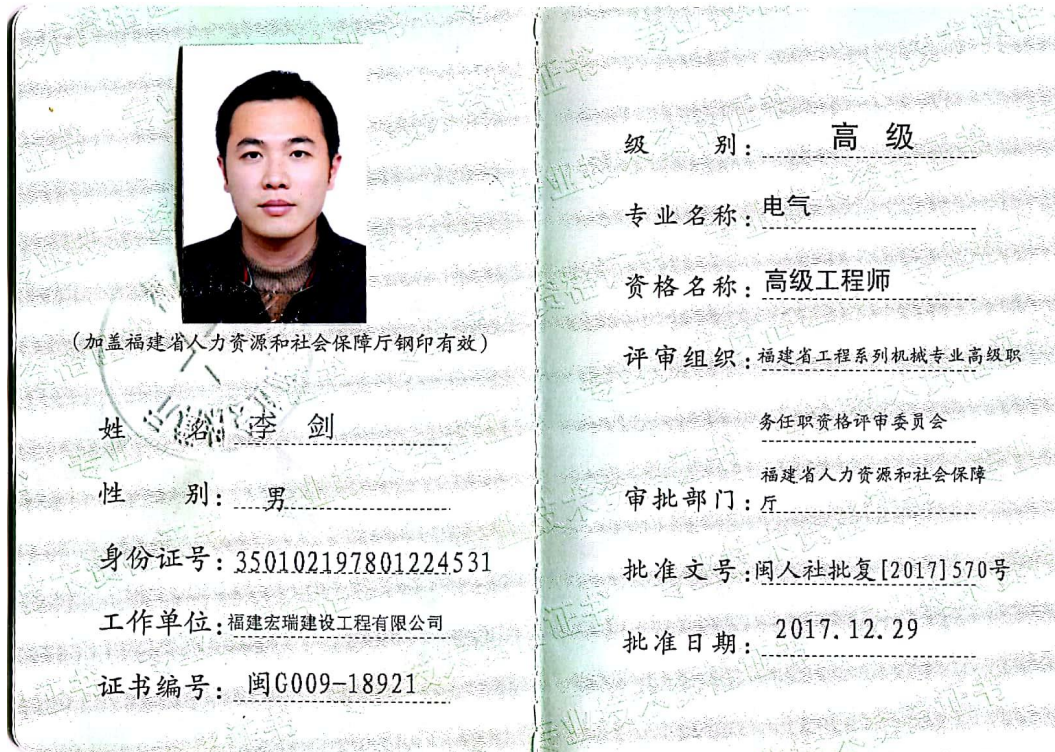 (加盖福建省人力资源和社会保障厅钢印有效)
姓 名 李 剑
性 别: 男
身份证号: 350102197801224531
工作单位: 福建宏瑞建设工程有限公司
证书编号: 闽G009-18921
级 别: 高 级
专业名称: 电气
资格名称: 高级工程师
评审组织: 福建省工程系列机械专业高级职
务任职资格评审委员会
福建省人力资源和社会保障
审批部门: 厅
批准文号: 闽人社批复[2017]570号
批准日期: 2017.12.29